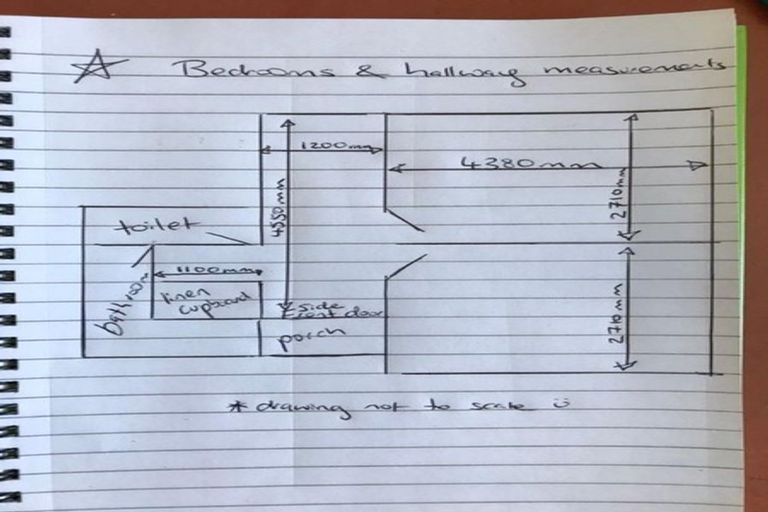 Bedrooms & hallway measurements
1200mm
4380mm
4550mm
2710mm
toilet
1100mm
bathroom
linen
cupboard
side
front door
porch
2710mm
* drawing not to scale ☺